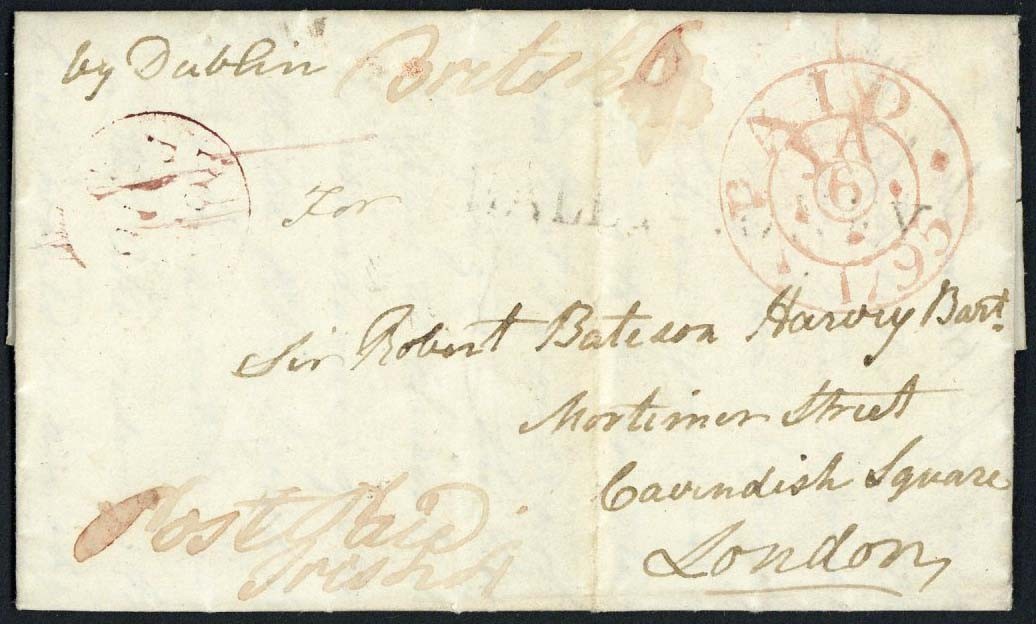 by Dublin
PAID
JA
6
1795
For
Sir Robert Bateson Harvey Bart.
Mortimer Street
Cavendish Square
London,
Post Paid